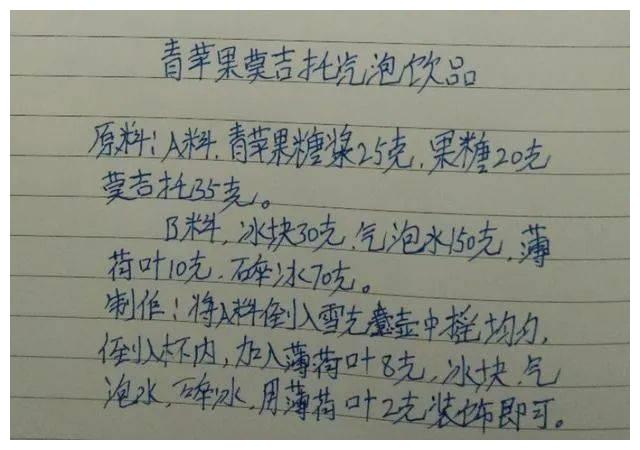 青苹果莫吉托汽泡饮品
原料:A料,青苹果糖浆25克,果糖20克
莫吉托35克。
B料,冰块30克,气泡水150克,薄
荷叶10克,碎冰70克。
制作:将A料倒入雪克壶中摇均匀,
倒入杯内,加入薄荷叶8克,冰块,气
泡水,碎冰,用薄荷叶2克装饰即可。